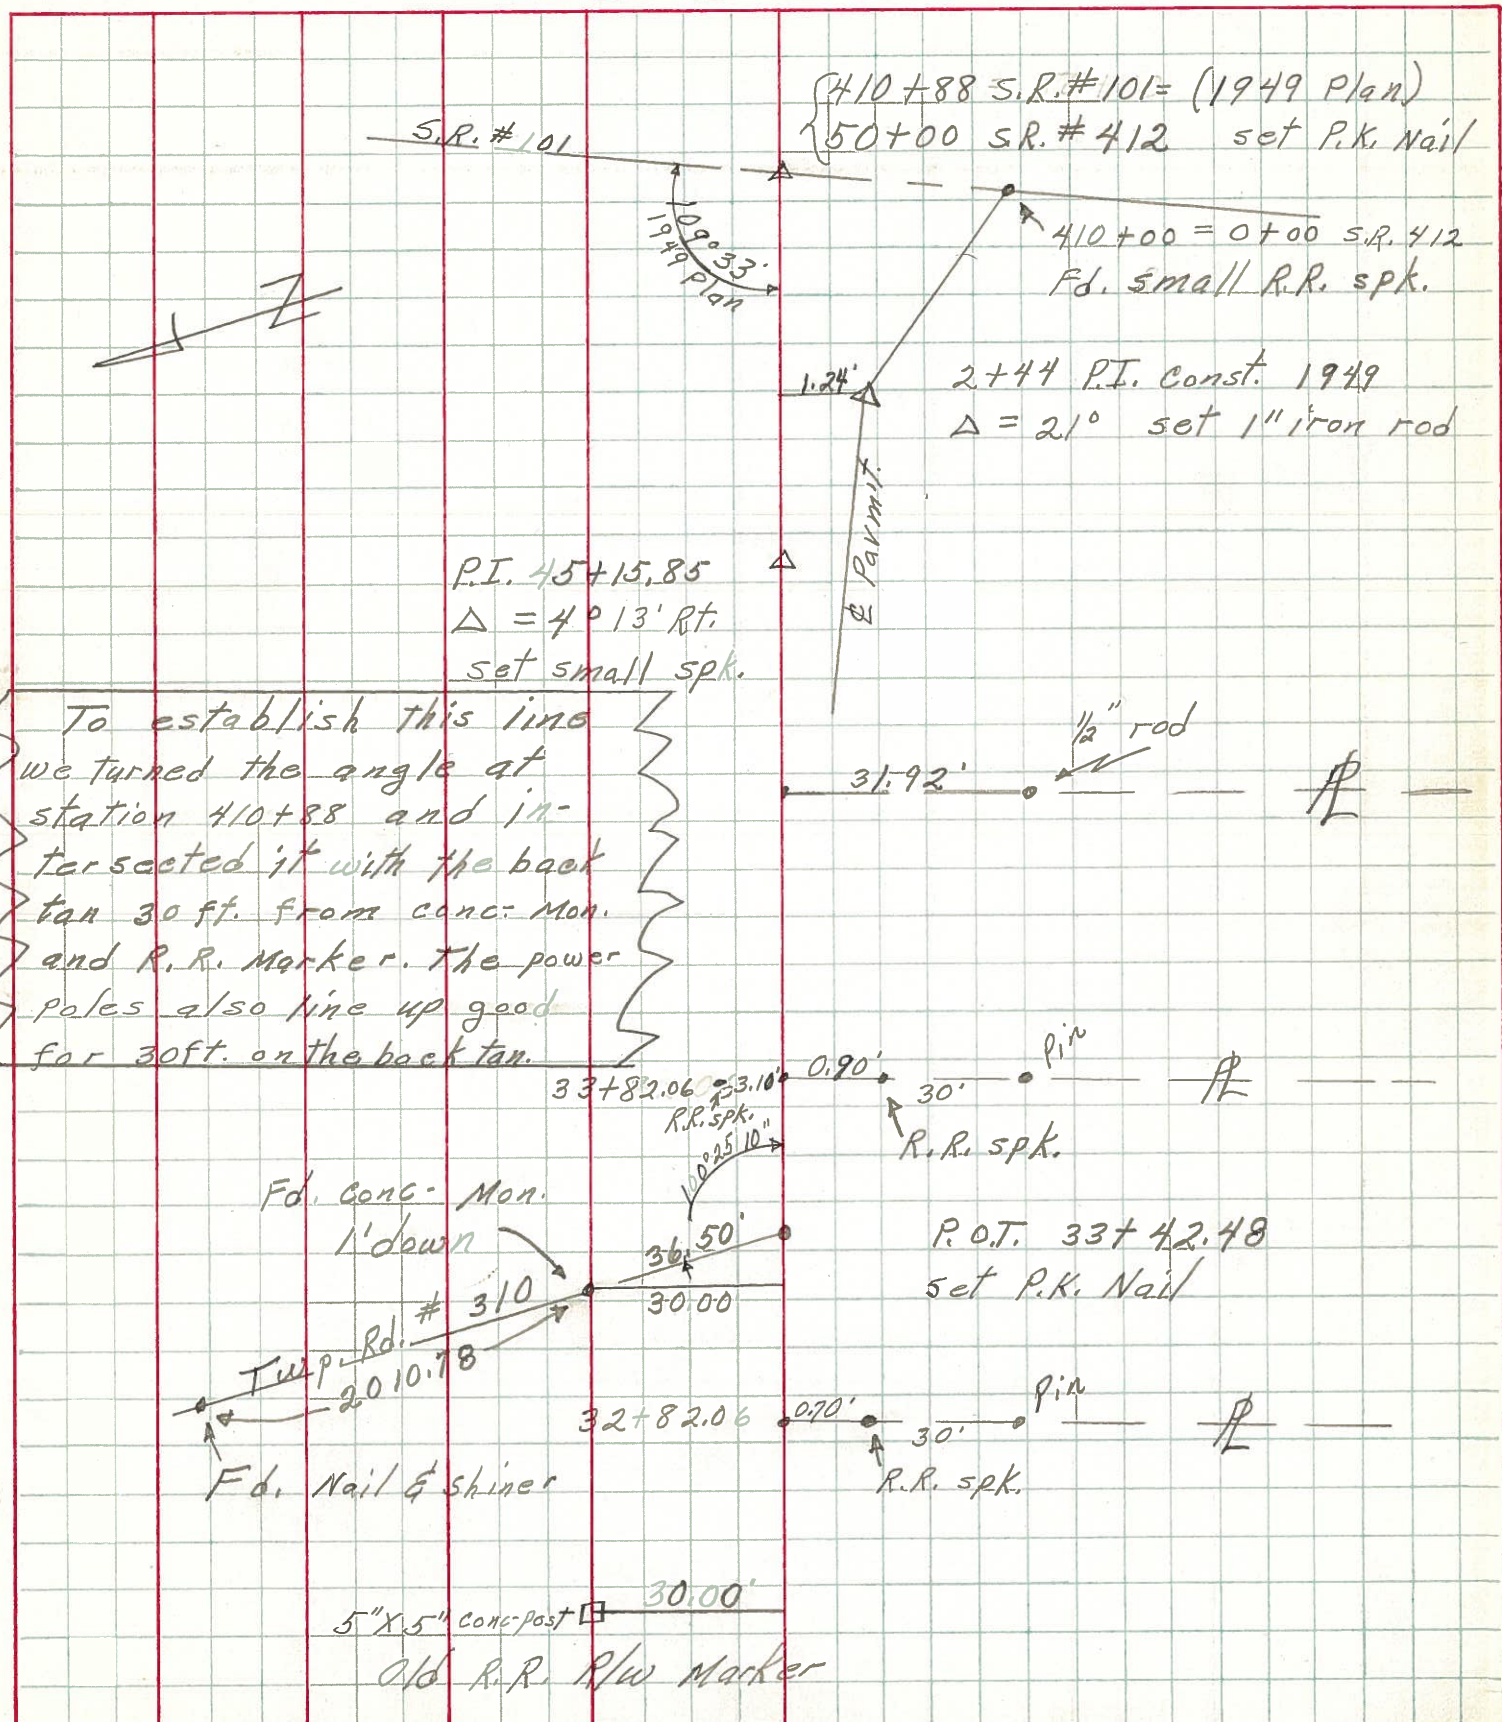 410+88 S.R.#101= (1949 Plan)
50+00 S.R.#412 set P.K. Nail
S.R. #101
109°33'
1949 Plan
410+00 = 0+00 S.R. 412
Fd. small R.R. spk.
N
1.24'
2+44 P.I. Const. 1949
Δ = 21° set 1" iron rod
℄ Pavm't.
P.I. 45+15.85
Δ = 4°13' Rt.
set small spk.
To establish this line
we turned the angle at
station 410+88 and in-
tersected it with the back
tan 30 ft. from conc- Mon.
and R.R. Marker. The power
poles also line up good
for 30ft. on the back tan.
1/2" rod
31.92'
PL
33+82.06 3.10'
R.R. spk.
0.90'
30'
Pin
PL
R.R. spk.
100°25'10"
Fd. conc- Mon.
1' down
36.50'
30.00
P.O.T. 33+42.48
set P.K. Nail
Twp. Rd. # 310
2010.78
Fd. Nail & shiner
32+82.06
0.70'
30'
Pin
PL
R.R. spk.
30.00'
5"X5" conc-post
Old R.R. R/W Marker